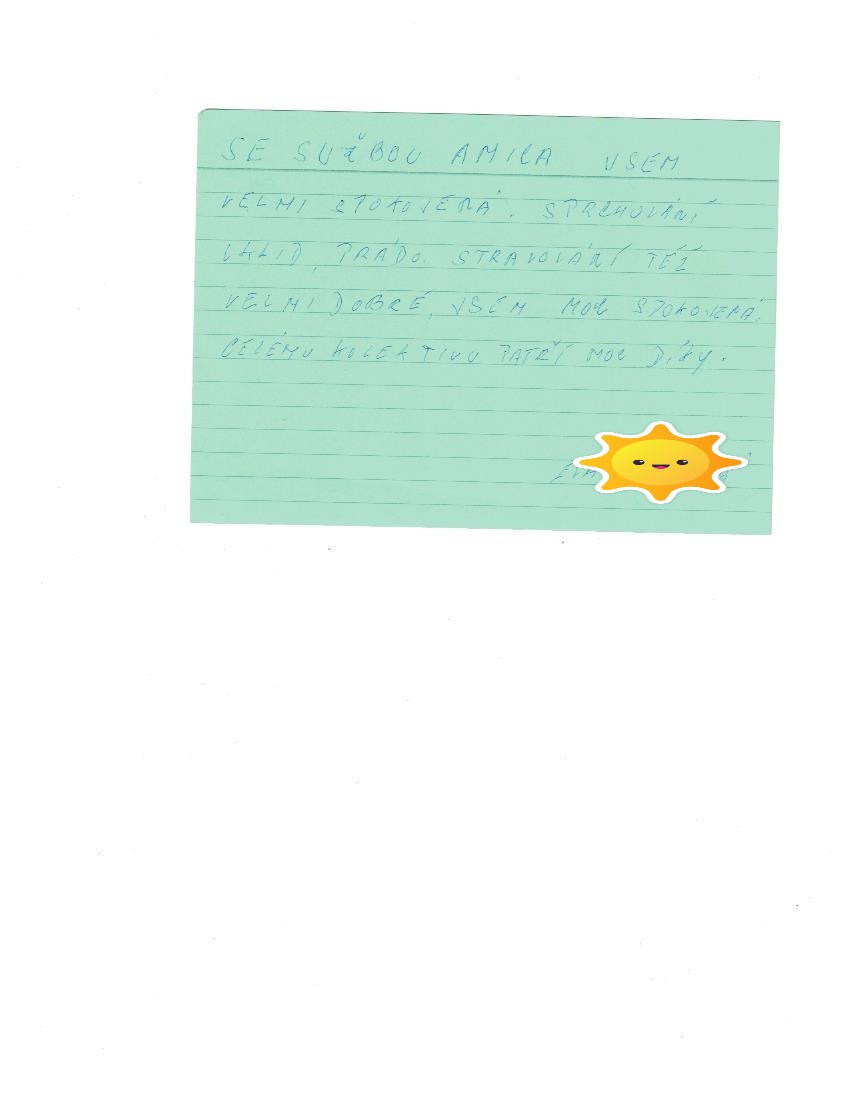 SE SUŽBOU AMICA VSEM
VELMI SPOKOJENÁ. SPRCHOVÁNÍ
ÚKLID, PRÁDO. STRAVOVÁNÍ TÉŽ
VELMI DOBRÉ, VSEM MOC SPOKOJENÁ.
CELÉMU KOLEKTIVU PATŘÍ MOC DÍKY.
EVA